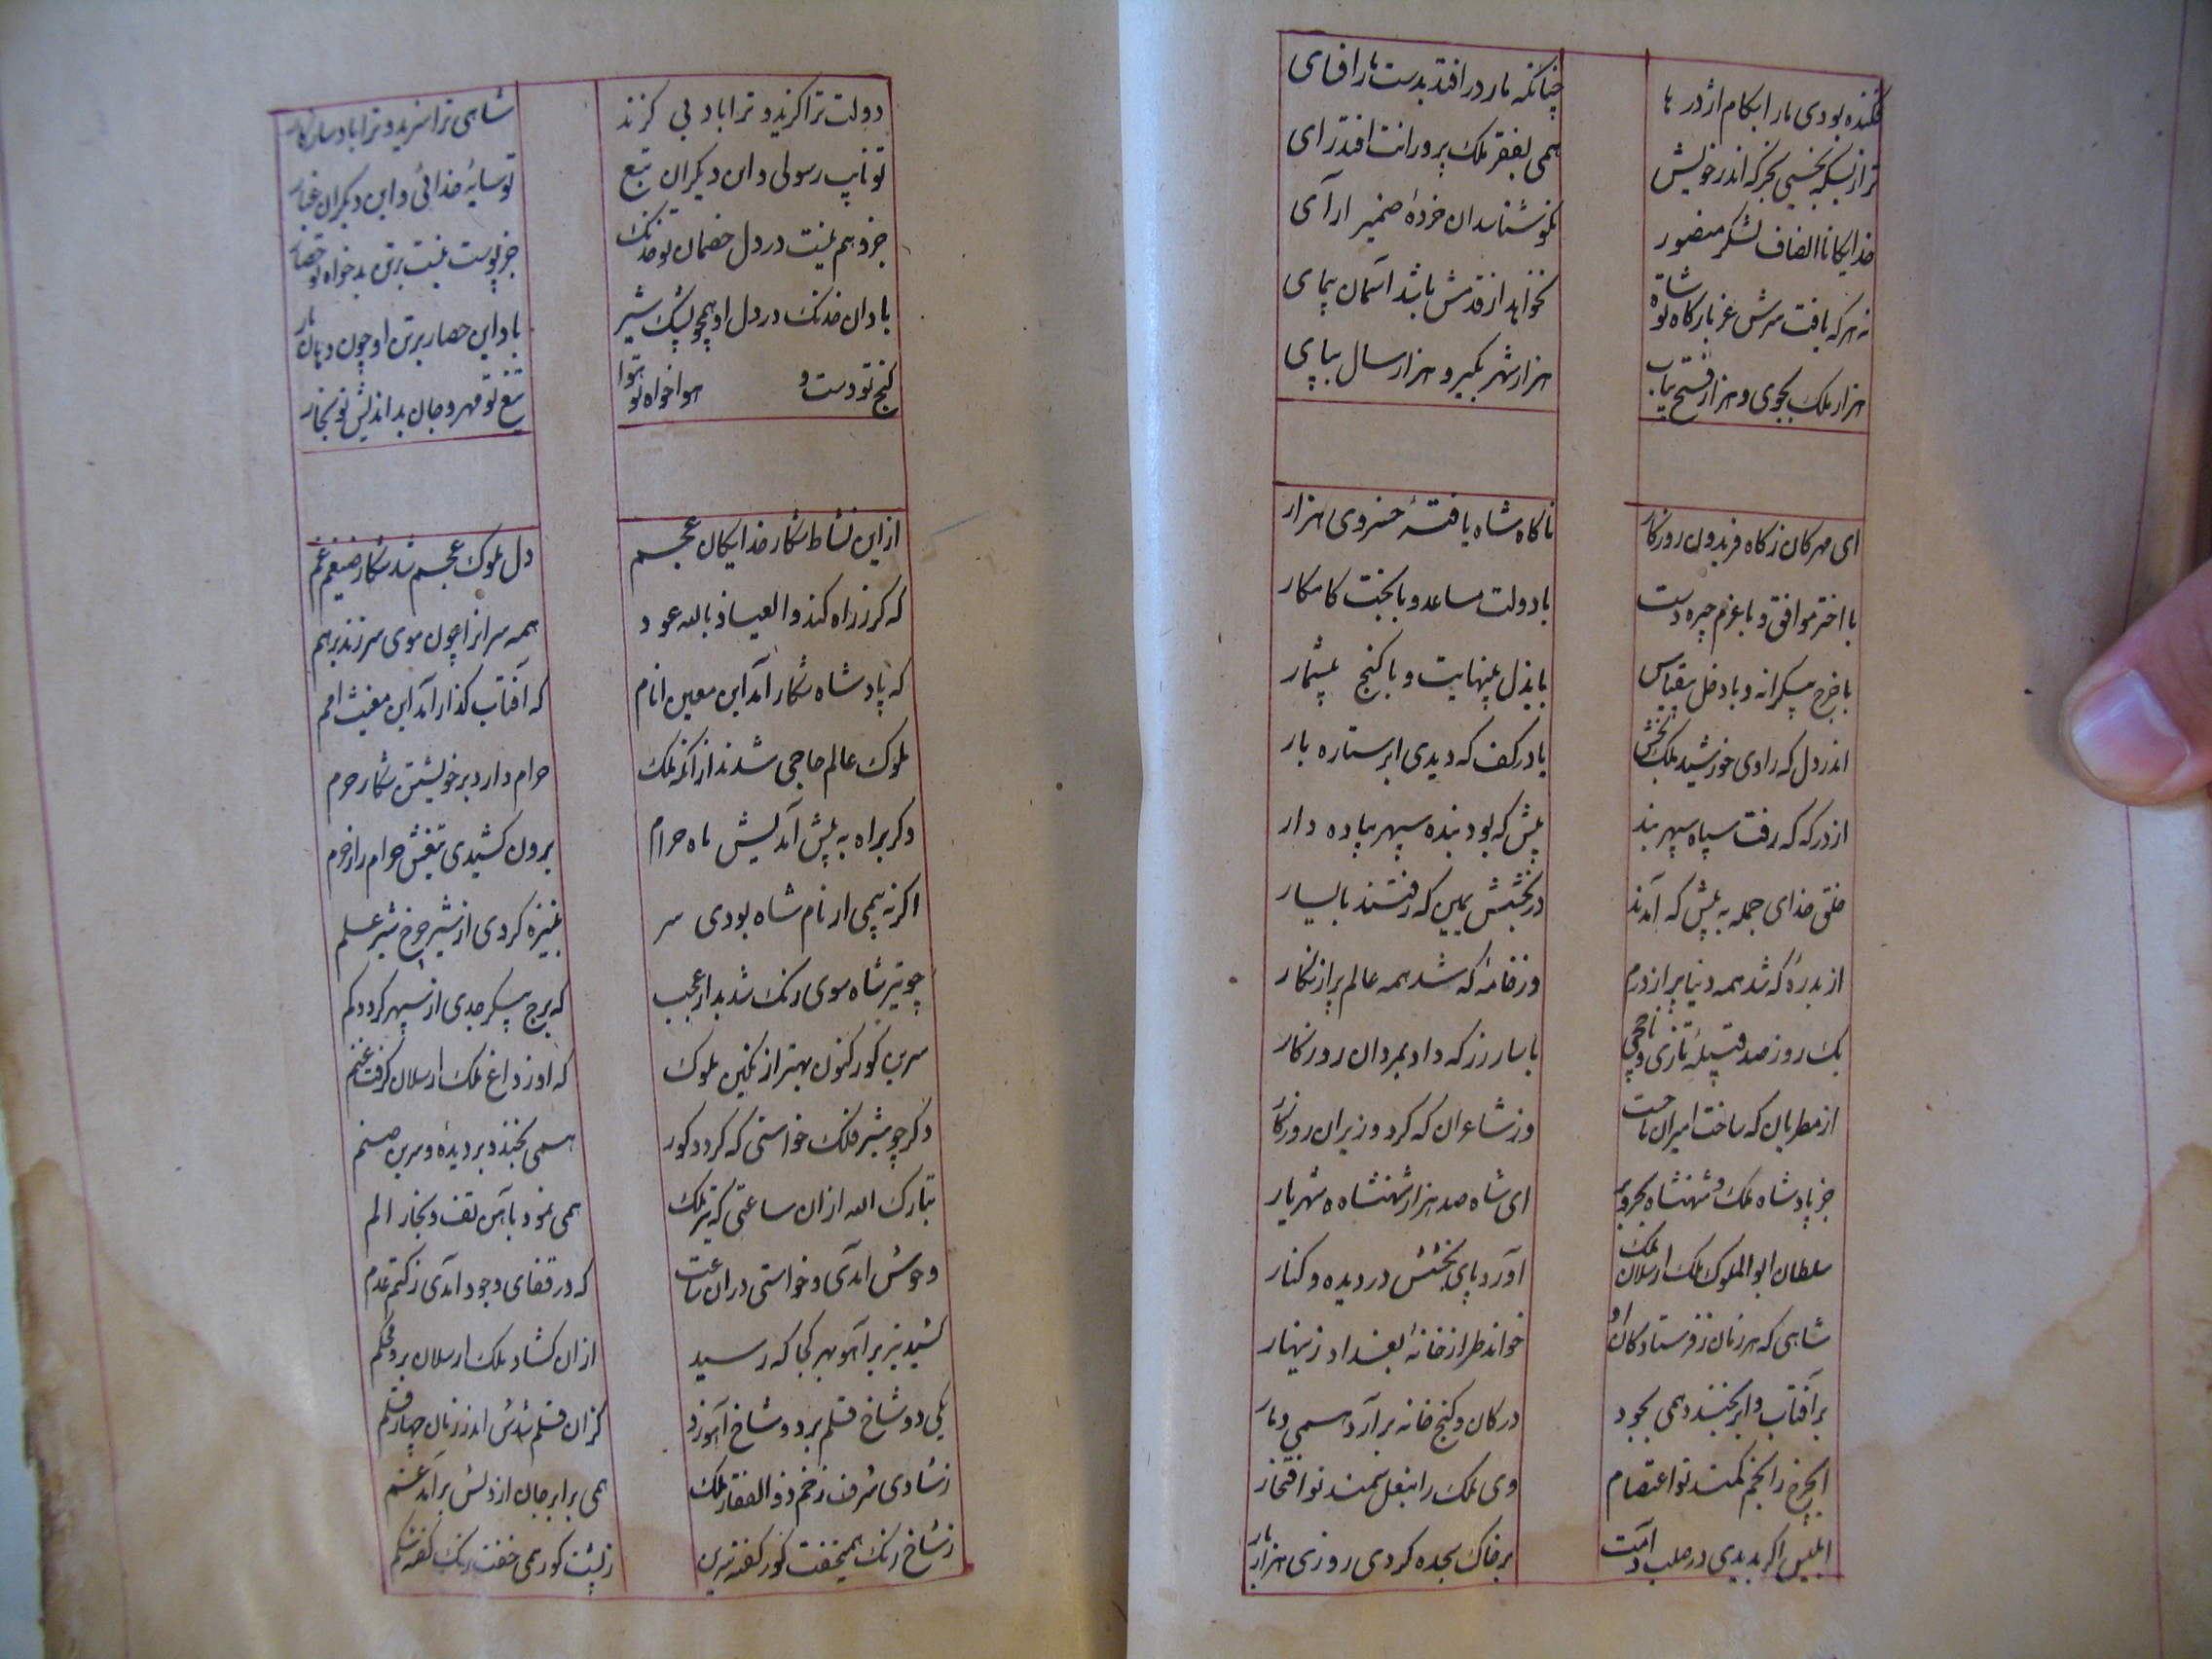 فکنده بودی مار ابکام اژدر ها
چنانکه مار در افتد بدست مار افسای
ترا ز بسکه ببخشی بخر که اندر خویش
همی بفقر ملک پرورانت افتد رای
خدایکانا انصاف لشکر منصور
نکو شناسدان خردهٔ ضمیر ارآی
نه هرکه یافت سرش عز بارکاه تو شاه
نخواهد از قدمش باشد آسمان پیمای
هزار ملک بجوی و هزار فتح بیاب
هزار شهر بکیر و هزار سال بپای
ای مهرکان ز کاه فریدون روزکار
ناکاه شاه یافتهٔ خسروی هزار
با اختر موافق و با عزم چیره دست
با دولت مساعد و با بخت کامکار
با خرج بیکرانه و با دخل بیقیاس
با بذل بینهایت و با کنج بیشمار
اندر دل که رادی خورشید ملک بخش
یا در کف که دیدی ابر ستاره بار
از درکه که رفت سپاه سپهر بند
پیش که بود بنده سپهر پیاده دار
خلق خدای جمله به پیش که آمدند
در بخشش یمین که رفتند با یسار
از بدرهٔ که شد همه دنیا پر از درم
وز خامهٔ که شد همه عالم پر از نکار
یک روز صد قبیلهٔ تازی و
با سار زر که داد بمردان روزکار
از مطربان که ساخت امیران
وز شاعران که کرد وزیران روزکار
جز پادشاه ملک و شهنشاه بحر و بر
ای شاه صد هزار شهنشاه و شهریار
سلطان ابوالملوک ملک ارسلان ملک
آورد پای بخشش در دیده و کنار
شاهی که هر زمان ز فرستادکان او
خواند طراز خانهٔ بغداد زینهار
بر آفتاب و ابر بخندد همی بجود
در کان و کنج خانه بر آرد همی دمار
ایچرخ را بخم کمند تو اعتصام
وی ملک را بنعل سمند تو افتخار
ابلیس اکر بدیدی در صلب آدمت
بر خاک سجده کردی روزی هزار بار
دولت ترا کزید و ترا باد بی کزند
شاهی ترا سزید و ترا باد سازکار
تو نایب رسولی و این دیکران تبع
تو سایهٔ خدائی و این دیکران غبار
جز وهم نیست در دل خصمان تو خدنک
جز پوست نیست بر تن بدخواه تو حصار
باد ان خدنک در دل او همچو نیشک شیر
باد این حصار بر تن او چون دهان مار
کنج تو دست و هوا خواه تو هوا
تیغ تو مهر و جان بداندیش تو بخار
از این نشاط شکار خدایکان عجم
دل ملوک عجم شد شکار ضیغم غم
که کر ز راه کند والعیاذ بالله عود
همه سرانرا چون موی سر زند بر هم
که پادشاه شکار آمد این معین انام
که آفتاب کذار آمد این مغیث امم
ملوک عالم حاجی شدند از آنکه ملک
حرام دارد بر خویشتن شکار حرم
دکر براه به پیش آمدیش ماه حرام
برون کشیدی تیغش حرام را ز حرم
اکر نه همی از نام شاه بودی سر
بنیزه کردی از شیر چرخ شیر علم
چو تیر شاه سوی رنک شد بدار عجب
که برج پیکر جدی از سپهر کردد کم
سرین کور کنون بهتر از نکین ملوک
که او ز داغ ملک ارسلان کرفت
دکر چو شیر فلک خواستی که کردد کور
همی بخندد بر دیده و سرین صنم
تبارک الله از ان ساعتی که تیر ملک
همی نمود بآهن تف و بخار الم
وحوش آمدی و خواستی در ان ساعت
که در قفای وجود آمدی ز کتم عدم
کشید تیر بر آهو بهر کجا که رسید
از ان کشاد ملک ارسلان بر و محکم
یکی دو شاخ قلم برد و شاخ آهو زد
کز ان قلم شدش اندر زمان چهار قلم
ز شادی شرف زخم ذوالفقار ملک
همی برابر جان از دلش برآمد غم
ز شاخ رنک همیخفت کور کفته سرین
ز پشت کور همی خفت رنک کفته شکم